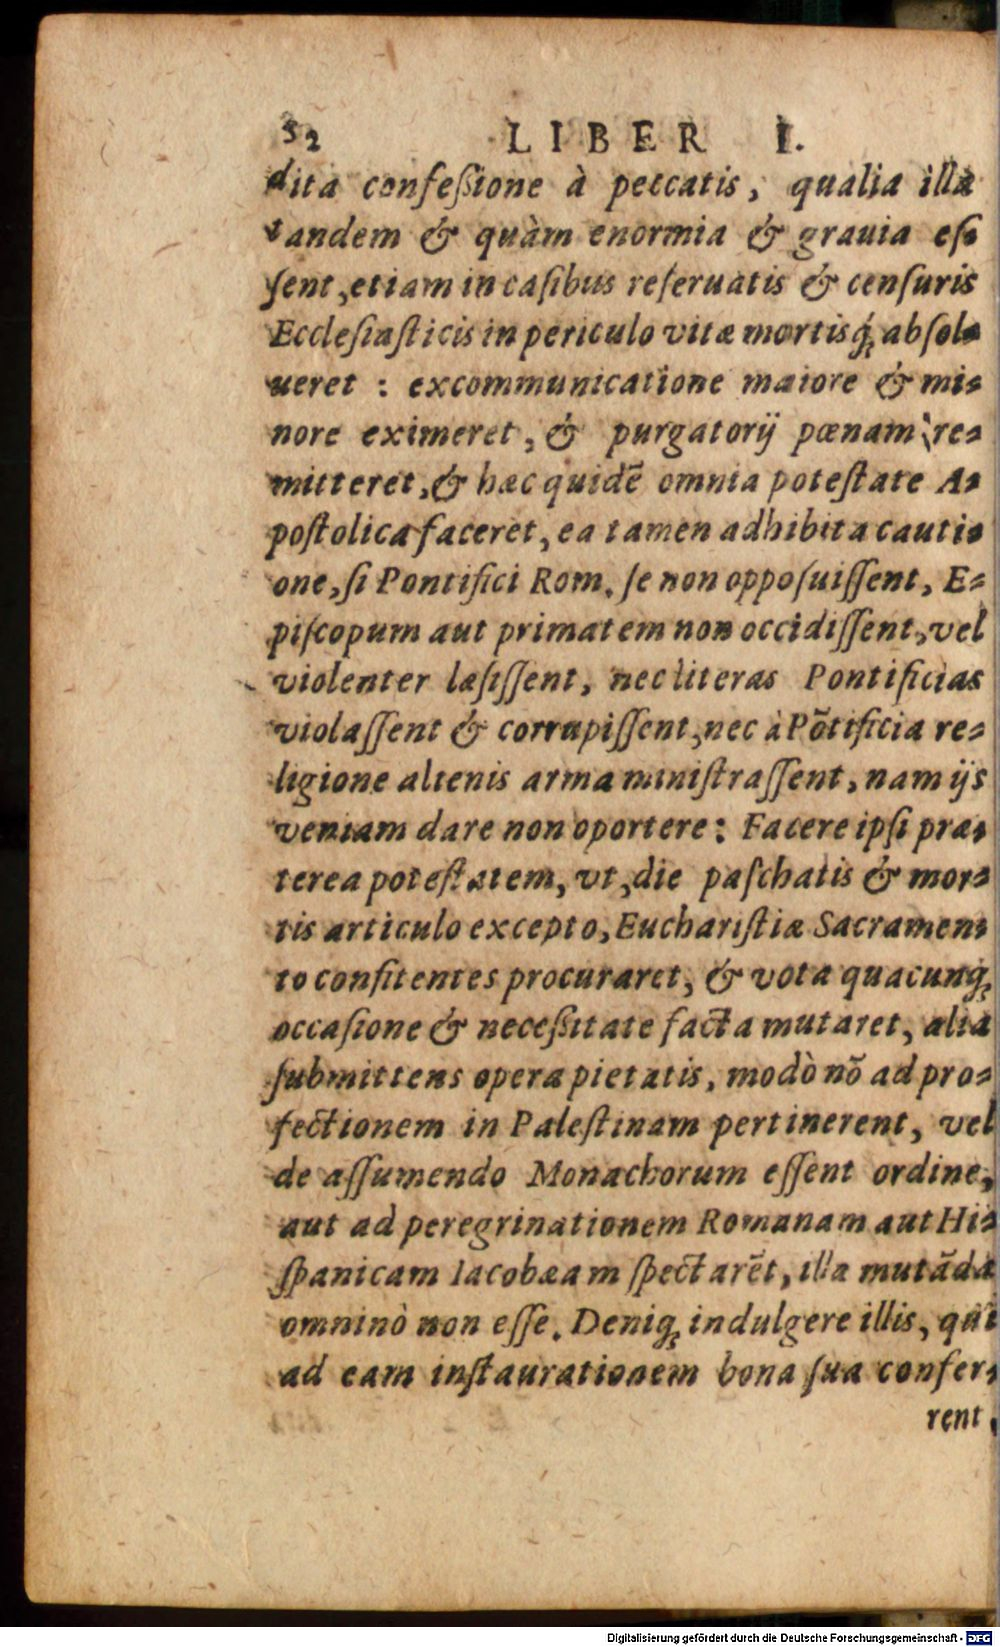 52 LIBER I.
dita confeßione à peccatis, qualia illa
tandem & quàm enormia & grauia eſ-
ſent, etiam in caſibus reſeruatis & cenſuris
Eccleſiaſticis in periculo vitæ mortisq́; abſol-
ueret : excommunicatione maiore & mi-
nore eximeret, & purgatorij pœnam re-
mitteret, & hæc quidē omnia poteſtate A-
poſtolica faceret, ea tamen adhibita cauti-
one, ſi Pontifici Rom. ſe non oppoſuiſſent, E-
piſcopum aut primatem non occidiſſent, vel
violenter læſiſſent, nec literas Pontificias
violaſſent & corrupiſſent, nec à Pōtificia re-
ligione alienis arma miniſtraſſent, nam ijs
veniam dare non oportere: Facere ipſi præ-
terea poteſtatem, vt, die paſchatis & mor-
tis articulo excepto, Euchariſtiæ Sacramen-
to confitentes procuraret, & vota quacunq;
occaſione & neceßitate facta mutaret, alia
ſubmittens opera pietatis, modò nō ad pro-
fectionem in Paleſtinam pertinerent, vel
de aſſumendo Monachorum eſſent ordine,
aut ad peregrinationem Romanam aut Hi-
ſpanicam Iacobæam ſpectarēt, illa mutāda
omninò non eſſe. Deniq; indulgere illis, qui
ad eam inſtaurationem bona ſua confer-
rent,
Digitalisierung gefördert durch die Deutsche Forschungsgemeinschaft - DFG